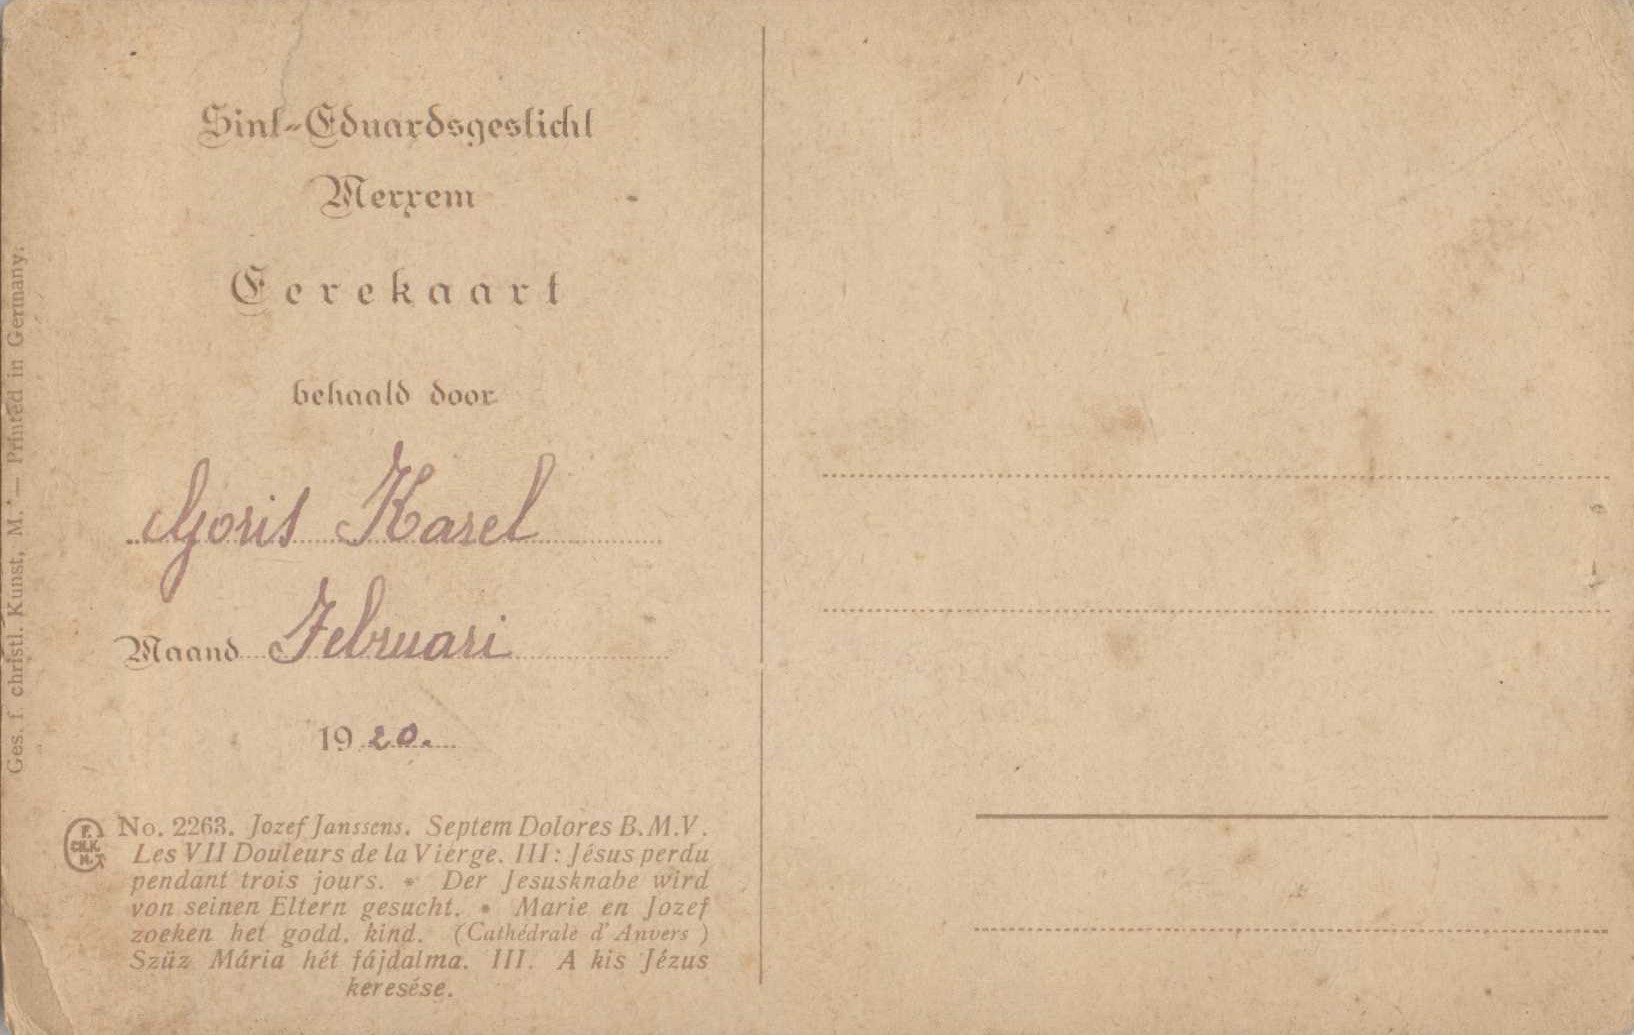 Sint-Eduardsgesticht
Merxem
Eerekaart
behaald door
Goris Karel
Maand Februari
1920.
No. 2263. Jozef Janssens. Septem Dolores B.M.V.
Les VII Douleurs de la Vierge. III: Jésus perdu
pendant trois jours. * Der Jesusknabe wird
von seinen Eltern gesucht. * Marie en Jozef
zoeken het godd. kind. (Cathédrale d'Anvers)
Szüz Mária hét fájdalma. III. A kis Jézus
keresése.
F.
CH.K.
M.
Ges. f. christl. Kunst, M. — Printed in Germany.